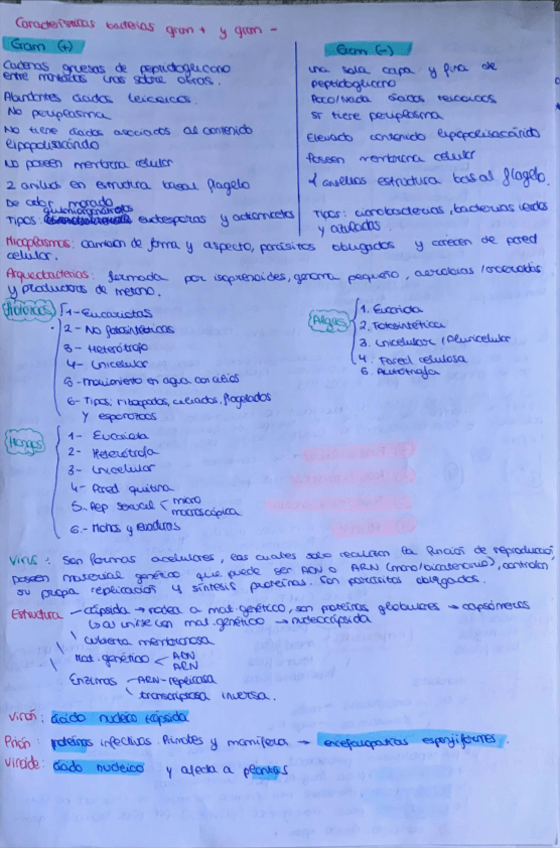 Características bacterias gram + y gram -
Gram (+)
Cadenas gruesas de peptidoglicano
entre unas sobre otras.
Abundantes ácidos teicoicos.
No periplasma
No tiene ácidos asociados al contenido
lipopolisacárido
No poseen membrana celular
2 anillos en estructura basal flagelo
De color morado
Tipos: endosporas y actinomicetos
Gram (-)
una sola capa y fina de
peptidoglicano
Poco/Nada ácidos teicoicos
Si tiene periplasma
Elevado contenido lipopolisacárido
Poseen membrana celular
4 anillos estructura basal flagelo.
Tipos: cianobacterias, bacterias
y
Micoplasmas: cambian de forma y aspecto, parásitos obligados y carecen de pared
celular.
Arquebacterias: formada por isoprenoides, genoma pequeño, aerobias /anaerobias
y productoras de metano.
Protozoos
1- Eucariotas
2- No fotosintéticos
3- Heterótrofo
4- Unicelular
5- Movimiento en agua con cilios
6- Tipos: rizópodos, ciliados, flagelados
y esporozoos
Algas
1. Eucariota
2. Fotosintética
3. Unicelular / Pluricelular
4. Pared celulosa
5. Autótrofa
Hongos
1- Eucariota
2- Heterótrofa
3- Unicelular
4- Pared quitina
5. Rep sexual micro
macroscópica
6.- Mohos y levaduras
Virus: Son formas acelulares, las cuales solo realizan la función de reproducción,
poseen material genético que puede ser ADN o ARN (mono/bicatenario), controlan
su propia replicación y síntesis proteínas. Son parásitos obligados.
Estructura - cápsida → rodea a mat. genético, son proteínas globulares → capsómeros
al unirse con mat. genético → nucleocápsida
Cubierta membranosa
Mat. genético ADN
ARN
Enzimas - ARN-replicasa
transcriptasa inversa.
Virión: ácido nucleico cápsida
Prión: proteínas infectivas. Primates y mamíferos → encefalopatías espongiformes.
Viroide: ácido nucleico y afecta a plantas